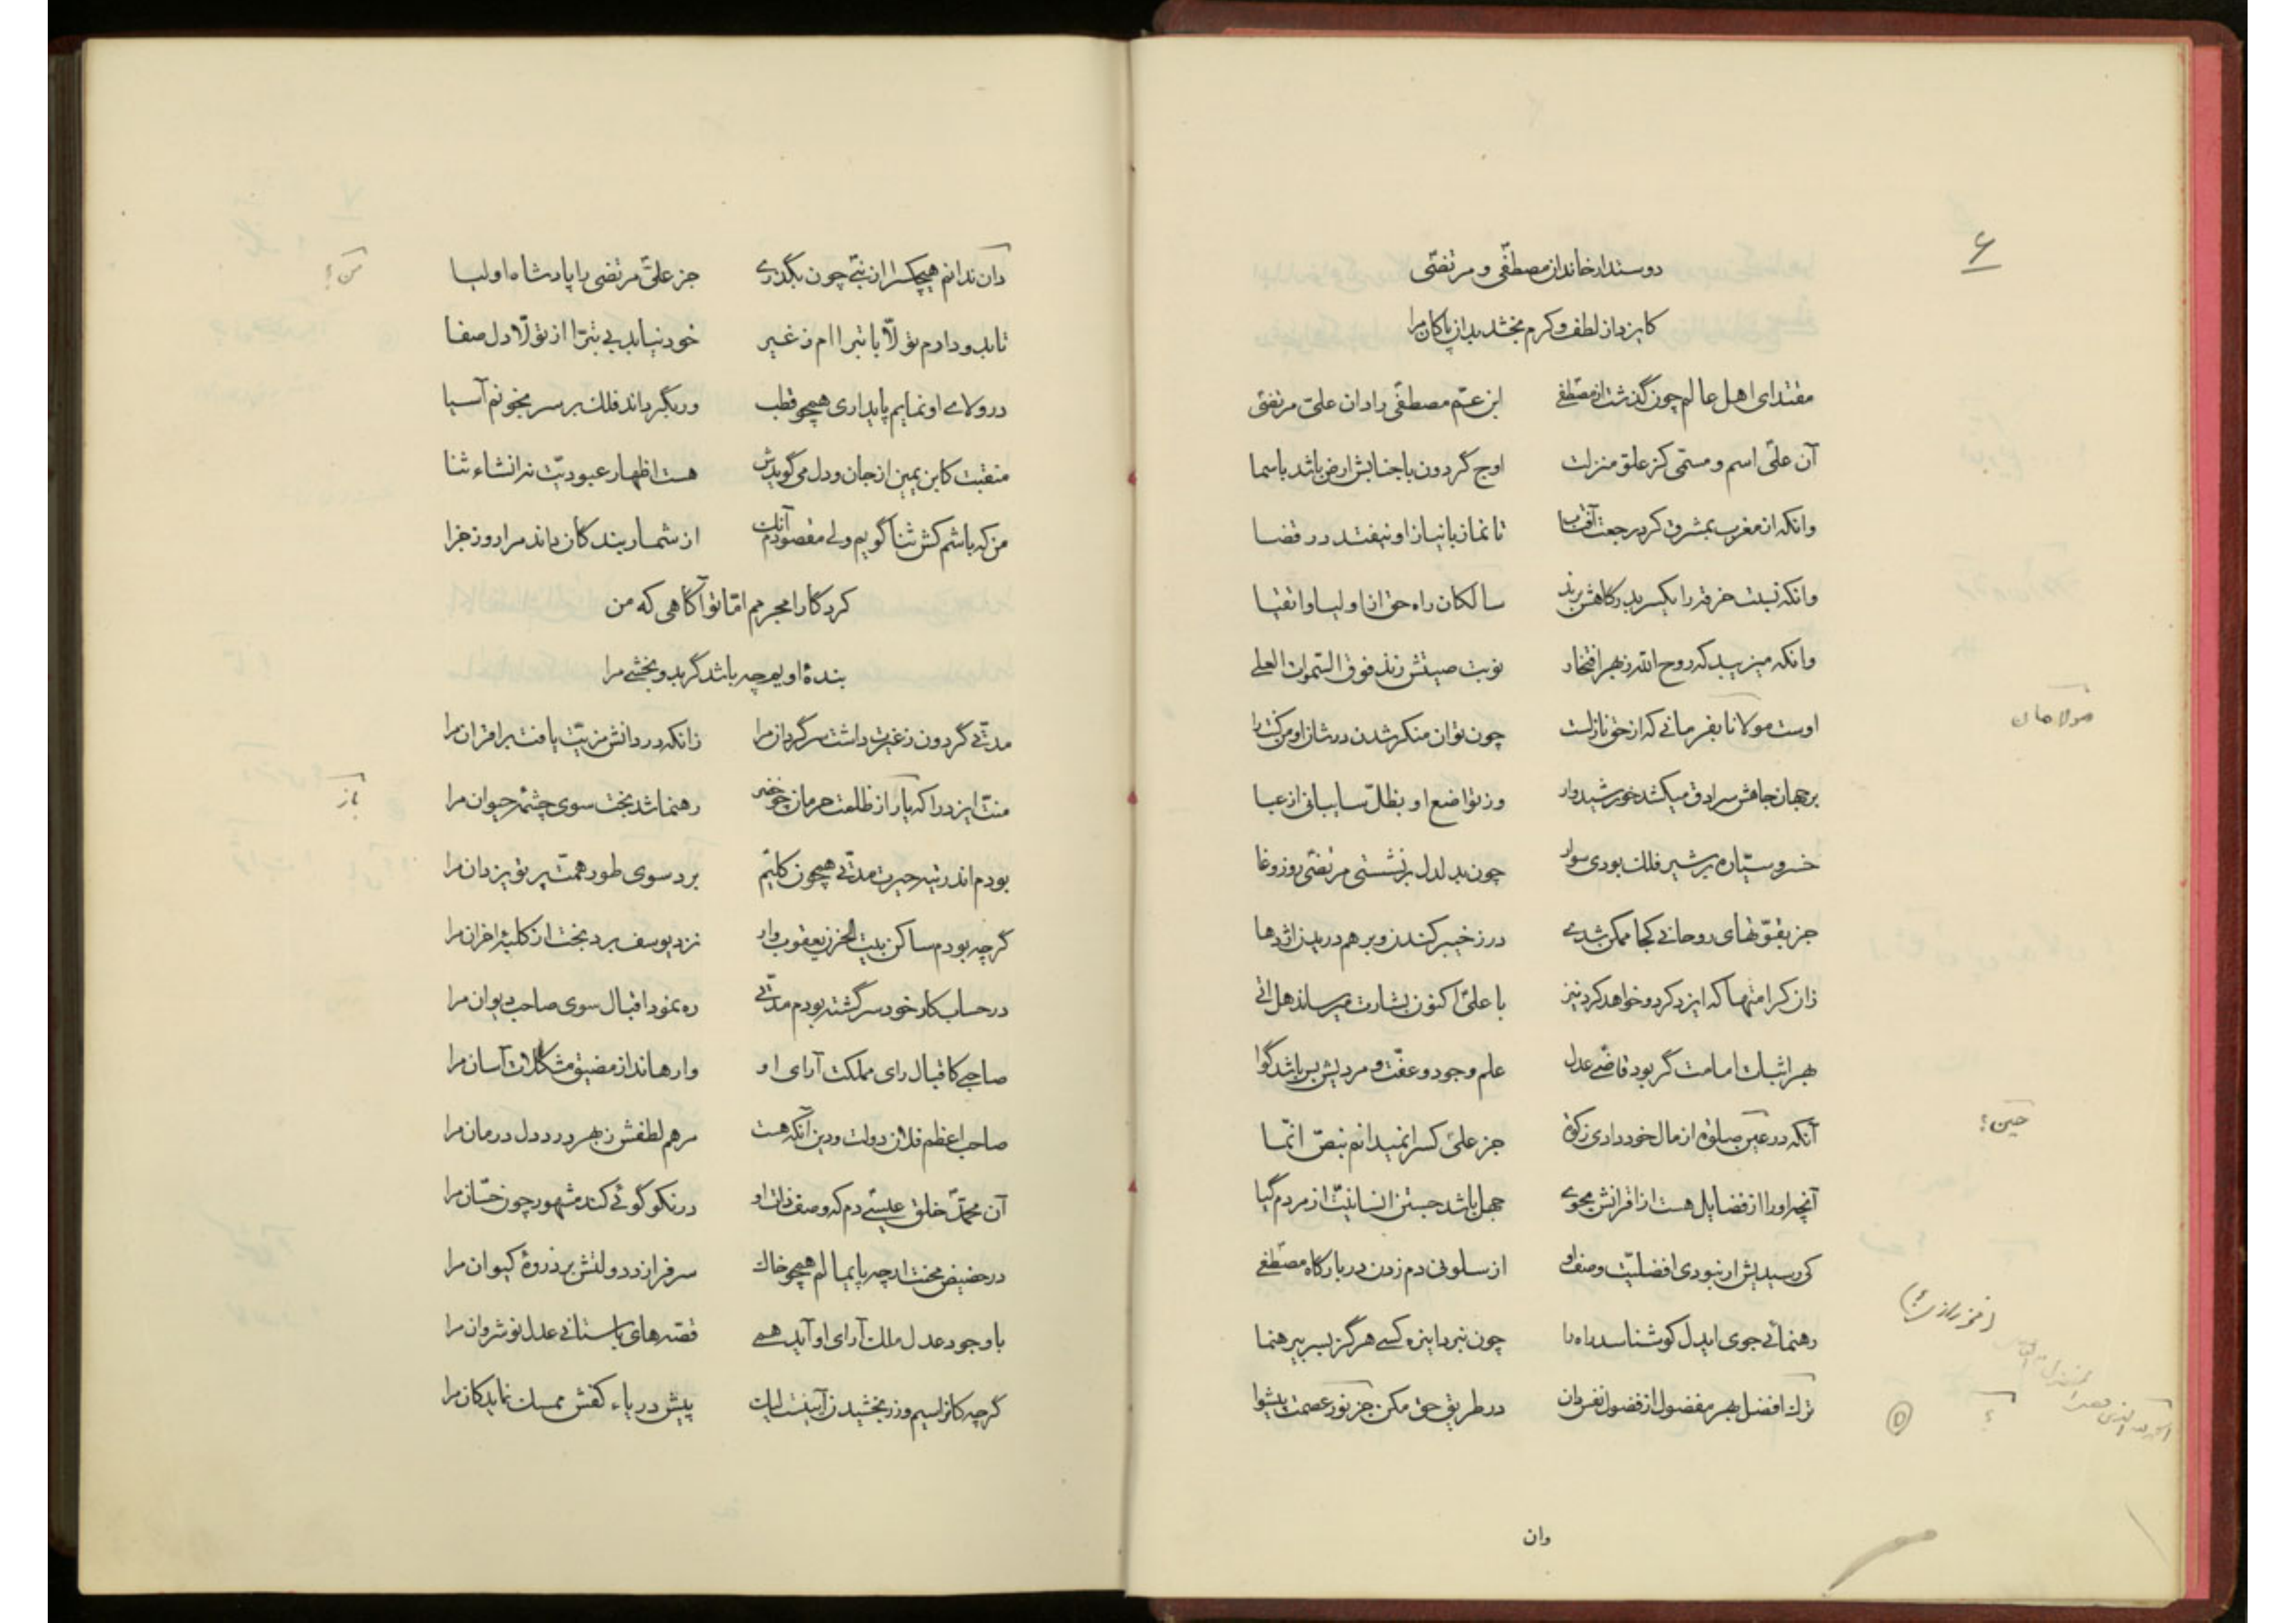 ۶
دوستدار خاندان مصطفّی و مرتضّی
کایزد از لطف و کرم بخشد بدان پاکان مرا
مقتدای اهل عالم چون گذشت از مصطفی ابن عمّ مصطفّی را دان علیّ مرتضّی
آن علیّ اسم و مسمّی کز علوّ منزلت اوج گردون با جنابش ارض باشد با سما
وانکه از مغرب بمشرق کرد رجعت آفتاب تا نماز با نیاز او نیفتد در قضا
وانکه نسبت خرقه را یکسر بدرگاهش برند سالکان راه حق از اولیا و اتقیا
وانکه میزیبد که روح الله ز بهر افتخار نوبت صیتش زند فوق السّموات العلی
اوست مولانا بفرمانی که از حق نازلست چون توان منکر شدن در شان او من کنت را
مولا
بر جهان جاهش سرادق میکشد خورشیدوار وز تواضع او بظلّ سایبانی از عبا
خسرو سیّاره بر شیر فلک بودی سوار چون بدلدل برنشستی مرتضّی روز وغا
جز بقوّتهای روحانی کجا ممکن شدی در ز خیبر کندن و بر هم دریدن اژدها
زان کرامتها که ایزد کرد و خواهد کرد نیز با علیّ اکنون بشارت میرساند هل اتی
بهر اثبات امامت گر بود قاضی عدل علم وجود و عفّت و مردیش بس باشد گوا
آنکه در عین صلوة از مال خود دادی زکوة جز علیّ کس را نمیدانم بنصّ انّما
حین؟
آنچه او را از فضایل هست از اقرانش مجوی جهل باشد جستن انسانیّت از مردم گیا
کی رسیدیش ار نبودی افضلیّت وصف او از سلونی دم زدن در بارگاه مصطّفی
رهنمائی جوی ایدل کو شناسد راه را چون نبرد این ره کسی هرگز بسر بی رهنما
ترک افضل بهر مفضول از فضول نفس دان در طریق حق مکن جز نور عصمت پیشوا
؟
وان
دان ندانم هیچکس را از نبّی چون بگذری جز علیّ مرتضی را پادشاه اولیا
من؟
تا بدو دارم تولّا با تبرا ام ز غیر خود نیاید بی تبرّا از تولّا دل صفا
در ولای او نمایم پایداری همچو قطب ور بگرداند فلک بر سر بخونم آسیا
منقبت کابن یمین از جان و دل می گویدش هست اظهار عبودیّت نه انشاء ثنا
من که باشم کش ثنا گویم ولی مقصودم آنک از شمار بندگان داند مرا روز جزا
کردگارا مجرمم امّا تو آگاهی که من
بندهٔ اویم چه باشد گر بدو بخشی مرا
مدّتی گردون ز غیرت داشت سرگردان مرا زانکه در دانش مزیّت یافت بر اقران مرا
منّت ایزد را که یار از ظلمت حرمان چو خضر رهنما شد بخت سوی چشمهٔ حیوان مرا
باز
بودم اندر تیه حیرت مدّتی همچون کلیّم برد سوی طور همّت پرتو یزدان مرا
گرچه بودم ساکن بیت الحزن یعقوب وار نزد یوسف برد بخت از کلبهٔ احزان مرا
در حساب کار خود سرگشته بودم مدّتی ره نمود اقبال سوی صاحب دیوان مرا
صاحبی کاقبال رای مملکت آرای او وارهاند از مضیق مشکلات آسان مرا
صاحب اعظم فلان دولت و دین آنکه هست مرهم لطفش ز بهر درد دل درمان مرا
آن محمّد خلق عیسّی دم که وصف ذات او در نکو گوئی کند مشهور چون حسّان مرا
در حضیض محنت ار چه پایمالم همچو خاک سرفرازد دولتش بر ذروهٔ کیوان مرا
با وجود عدل ملک آرای او آید همی قصّه های باستانی عدل نوشروان مرا
گرچه کانرا سیم و زر بخشیدن آیینست لیک پیش دریاء کفش ممسک نماید کان مرا